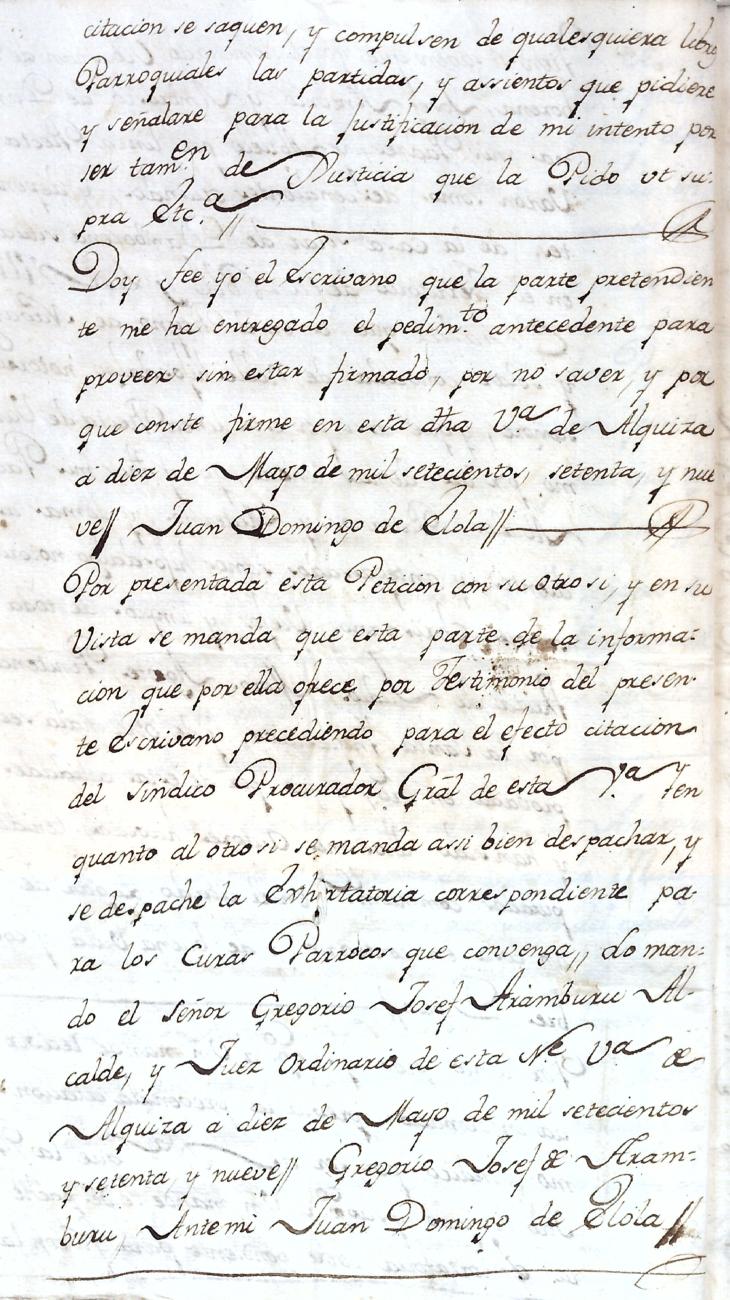 citacion se saquen, y compulsen de qualesquiera libros
Parroquiales las partidas, y assientos que pidiere
y señalare para la Justificacion de mi intento por
ser tam.en de Justicia que la Pido ut su-
pra Etc.a //
Doy fee yo el Escrivano que la parte pretendien
te me ha entregado el pedim.to antecedente para
proveer sin estar firmado, por no saver, y por
que conste firme en esta dha V.a de Alquiza
a diez de Mayo de mil setecientos, setenta, y nue
ve // Juan Domingo de Elola //
Por presentada esta Peticion con su otro si, y en su
Vista se manda que esta parte de la informa=
cion que por ella ofrece por Testimonio del presen-
te Escrivano precediendo para el efecto citacion
del sindico Procurador Gral de esta V.a Ien
quanto al otro si se manda assi bien despachar, y
se despache la Exhortatoria correspondiente pa-
ra los Curas Parrocos que convenga // Lo man=
do el señor Gregorio Josef Aramburu Al-
calde, y Juez Ordinario de esta N.e V.a de
Alquiza a diez de Mayo de mil setecientos
y setenta, y nueve // Gregorio Josef de Aram=
buru, Antemi Juan Domingo de Elola //